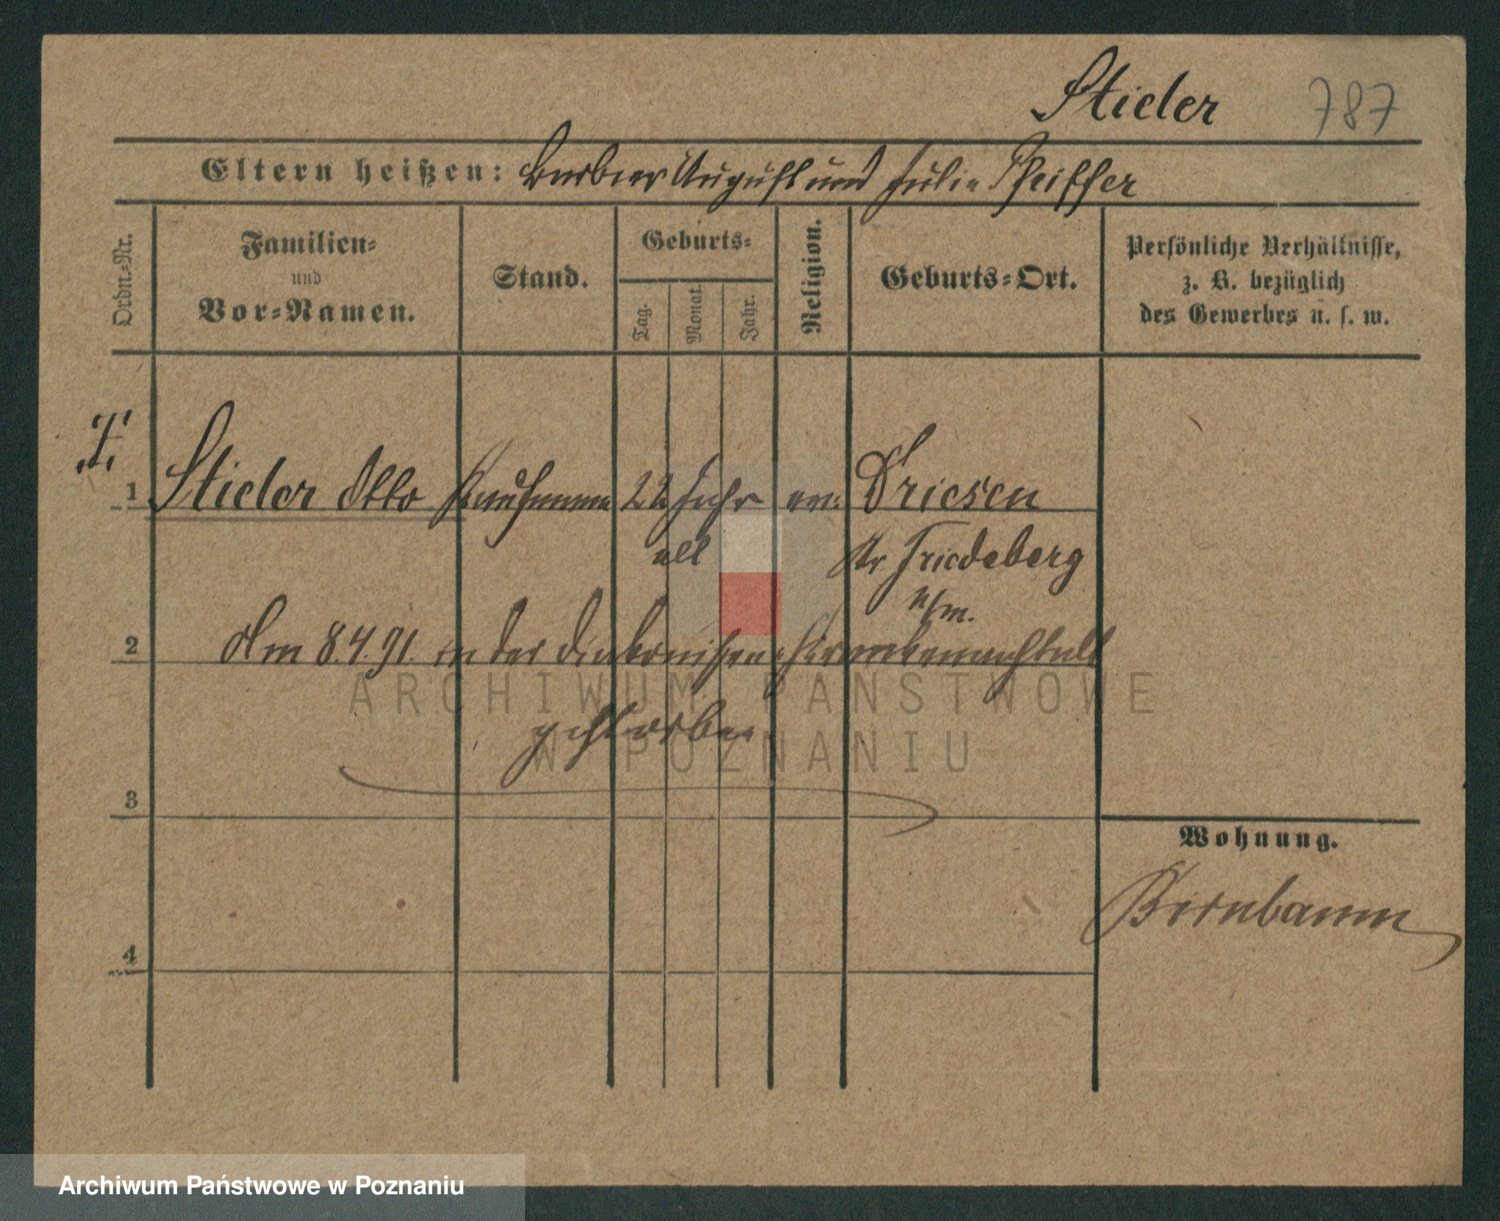 Stieler 787
Eltern heißen: Barbier August und Julie Pfeiffer
Ordn.-Nr.
Familien-
und
Vor-Namen.
Stand.
Geburts-
Tag.
Monat.
Jahr.
Religion.
Geburts-Ort.
Persönliche Verhältnisse,
z. B. bezüglich
des Gewerbes u. s. w.
1 Stieler Otto Kaufmann 22 Jahr ev. Driesen
alt Kr Friedeberg
N/m.
2 Am 8.4.91. in der Diakonissen Krankenanstalt
gestorben
3
Wohnung.
Birnbaum
4
ARCHIWUM PAŃSTWOWE
W POZNANIU
Archiwum Państwowe w Poznaniu